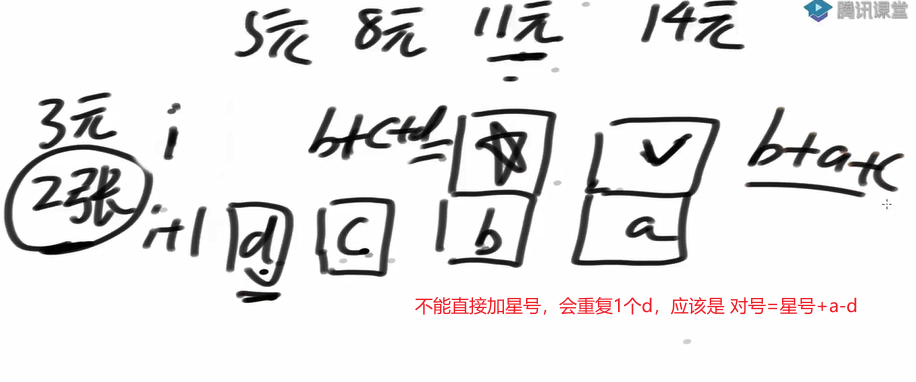 腾讯课堂
5元 8元 11元 14元
3元 i b+c+d= ☆ ✓ b+a+c
2张 i+1 d c b a
不能直接加星号，会重复1个d，应该是 对号=星号+a-d